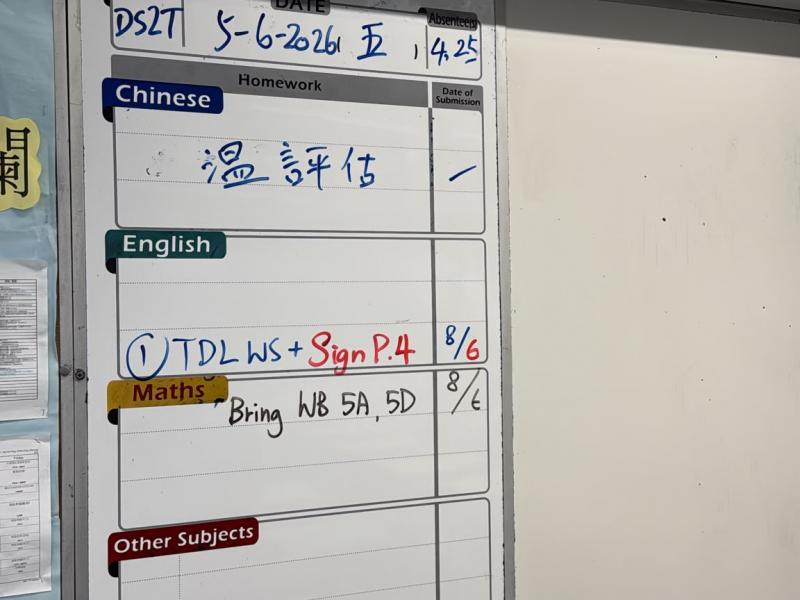 DATE
Absentee(s)
DS2T 5-6-2026, 五, 4,25
Homework
Date of Submission
Chinese
溫評估
English
① TDL WS + Sign P.4 8/6
Maths
Bring WB 5A, 5D 8/6
Other Subjects